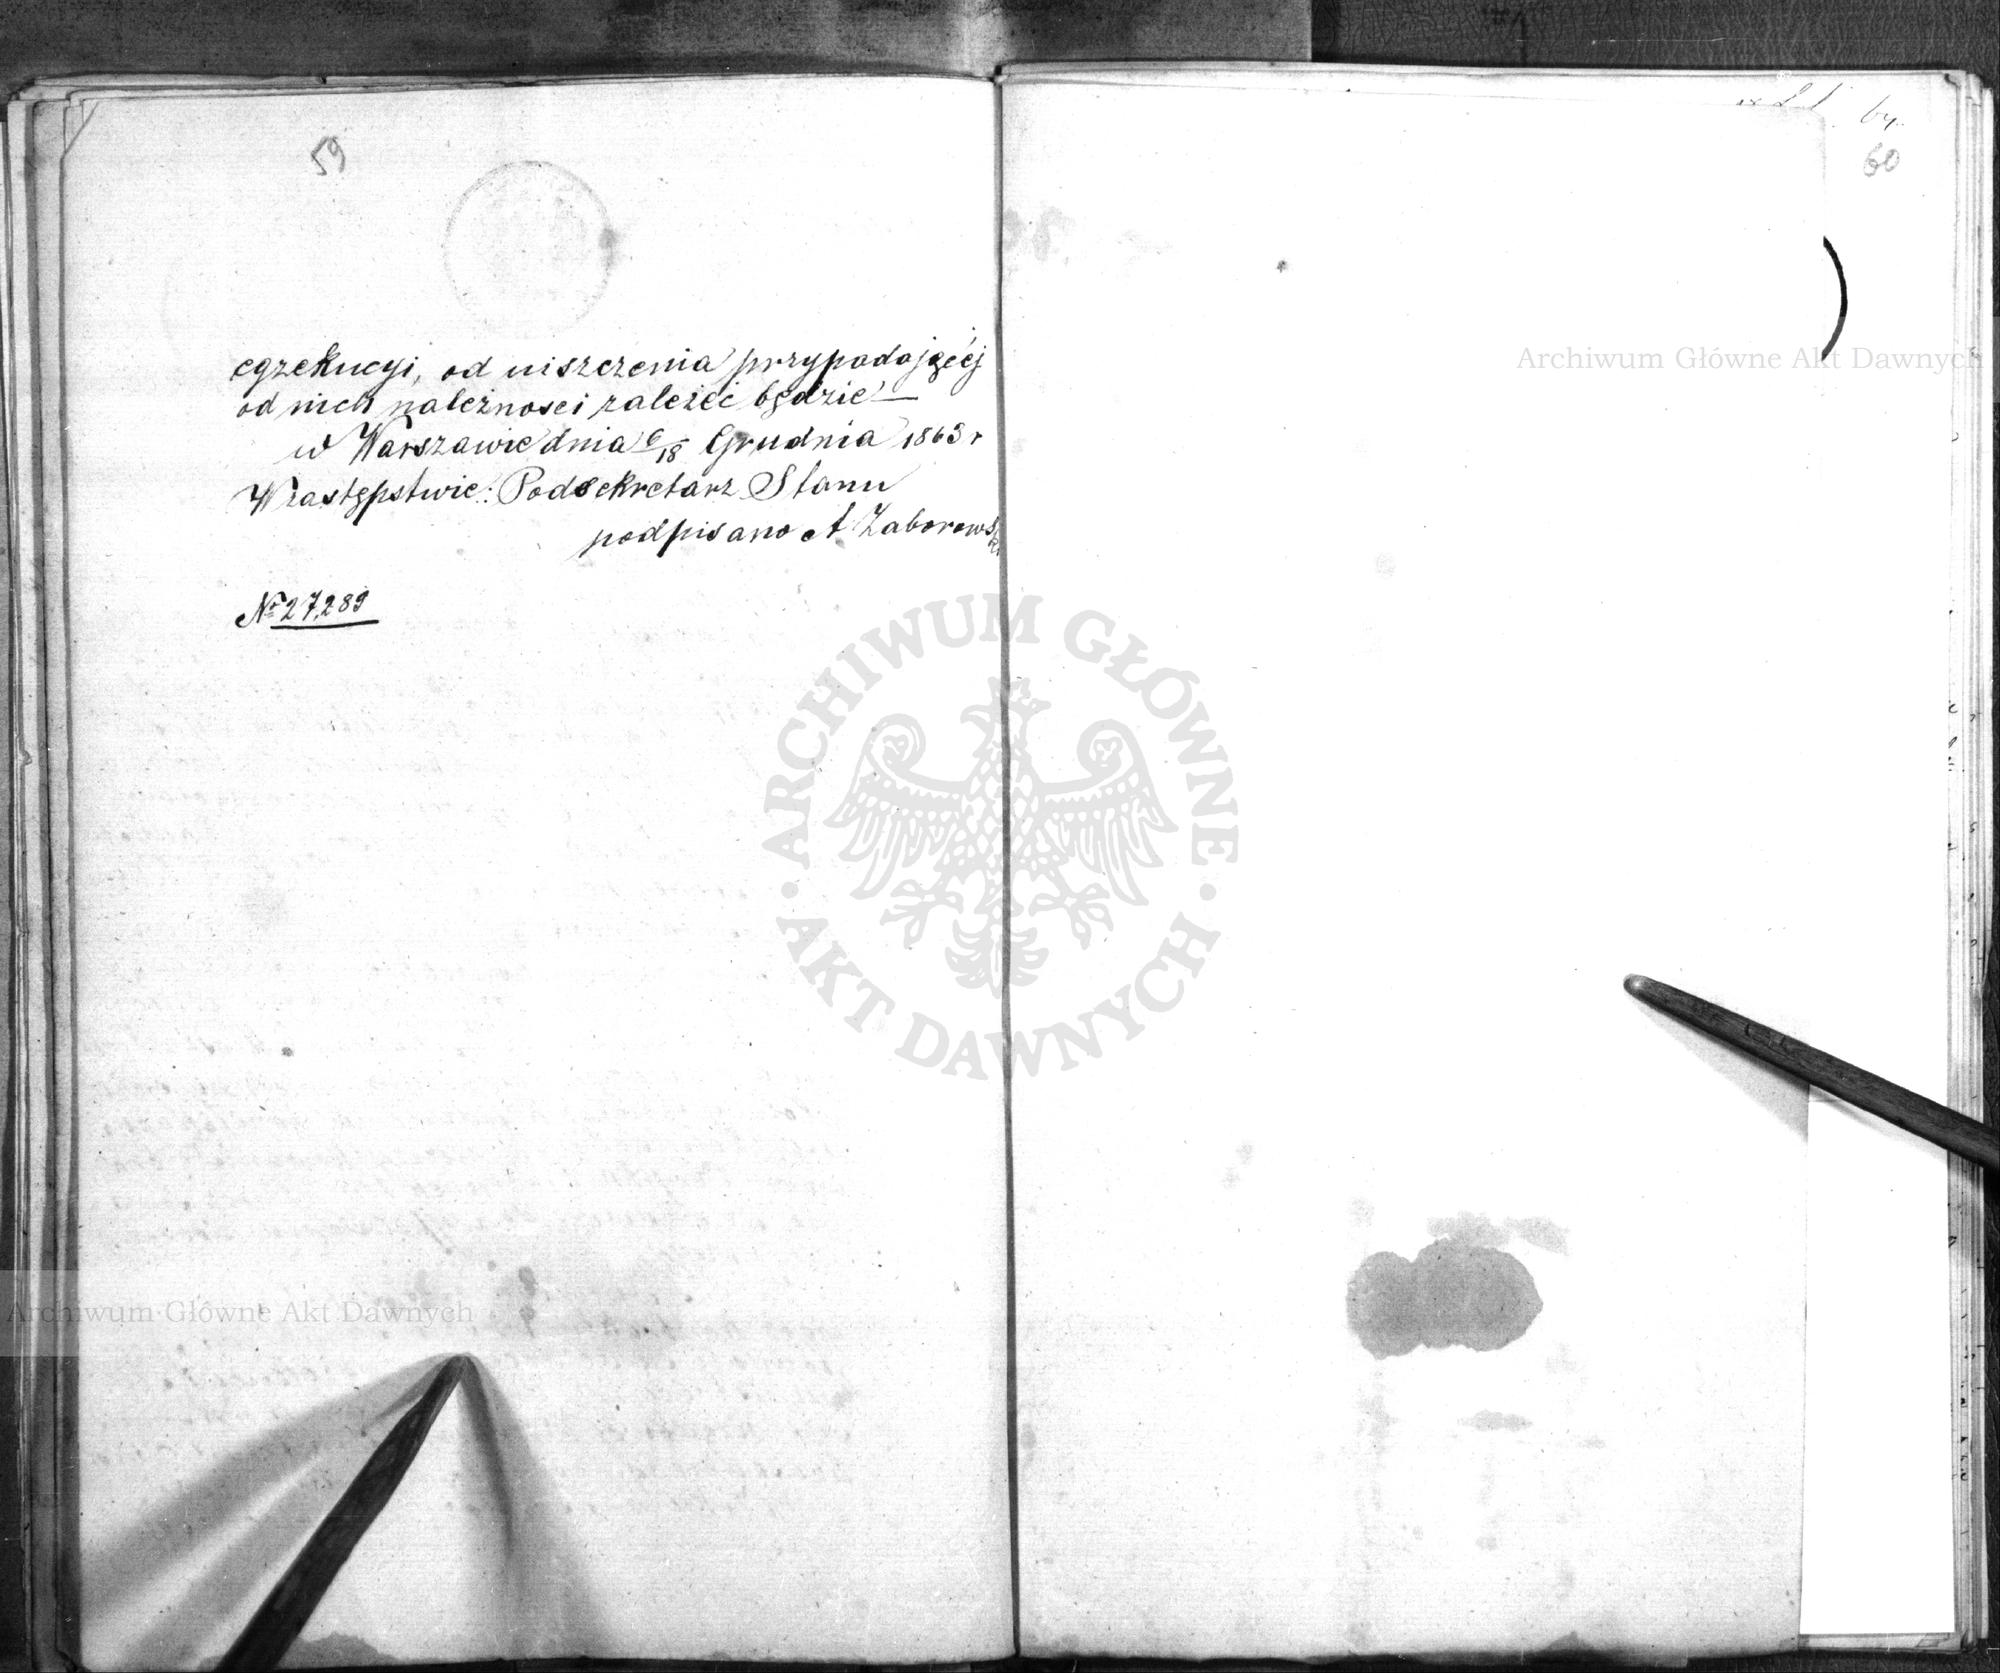 59
egzekucyi, od uiszczenia przypadającéj
od nich należności zależeć będzie
w Warszawie dnia 6/18 Grudnia 1863 r
W zastępstwie: Podsekretarz Stanu
podpisano A Zaborowski
№ 27,289
60
Archiwum Główne Akt Dawnych
ARCHIWUM GŁÓWNE • AKT DAWNYCH •
Archiwum Główne Akt Dawnych